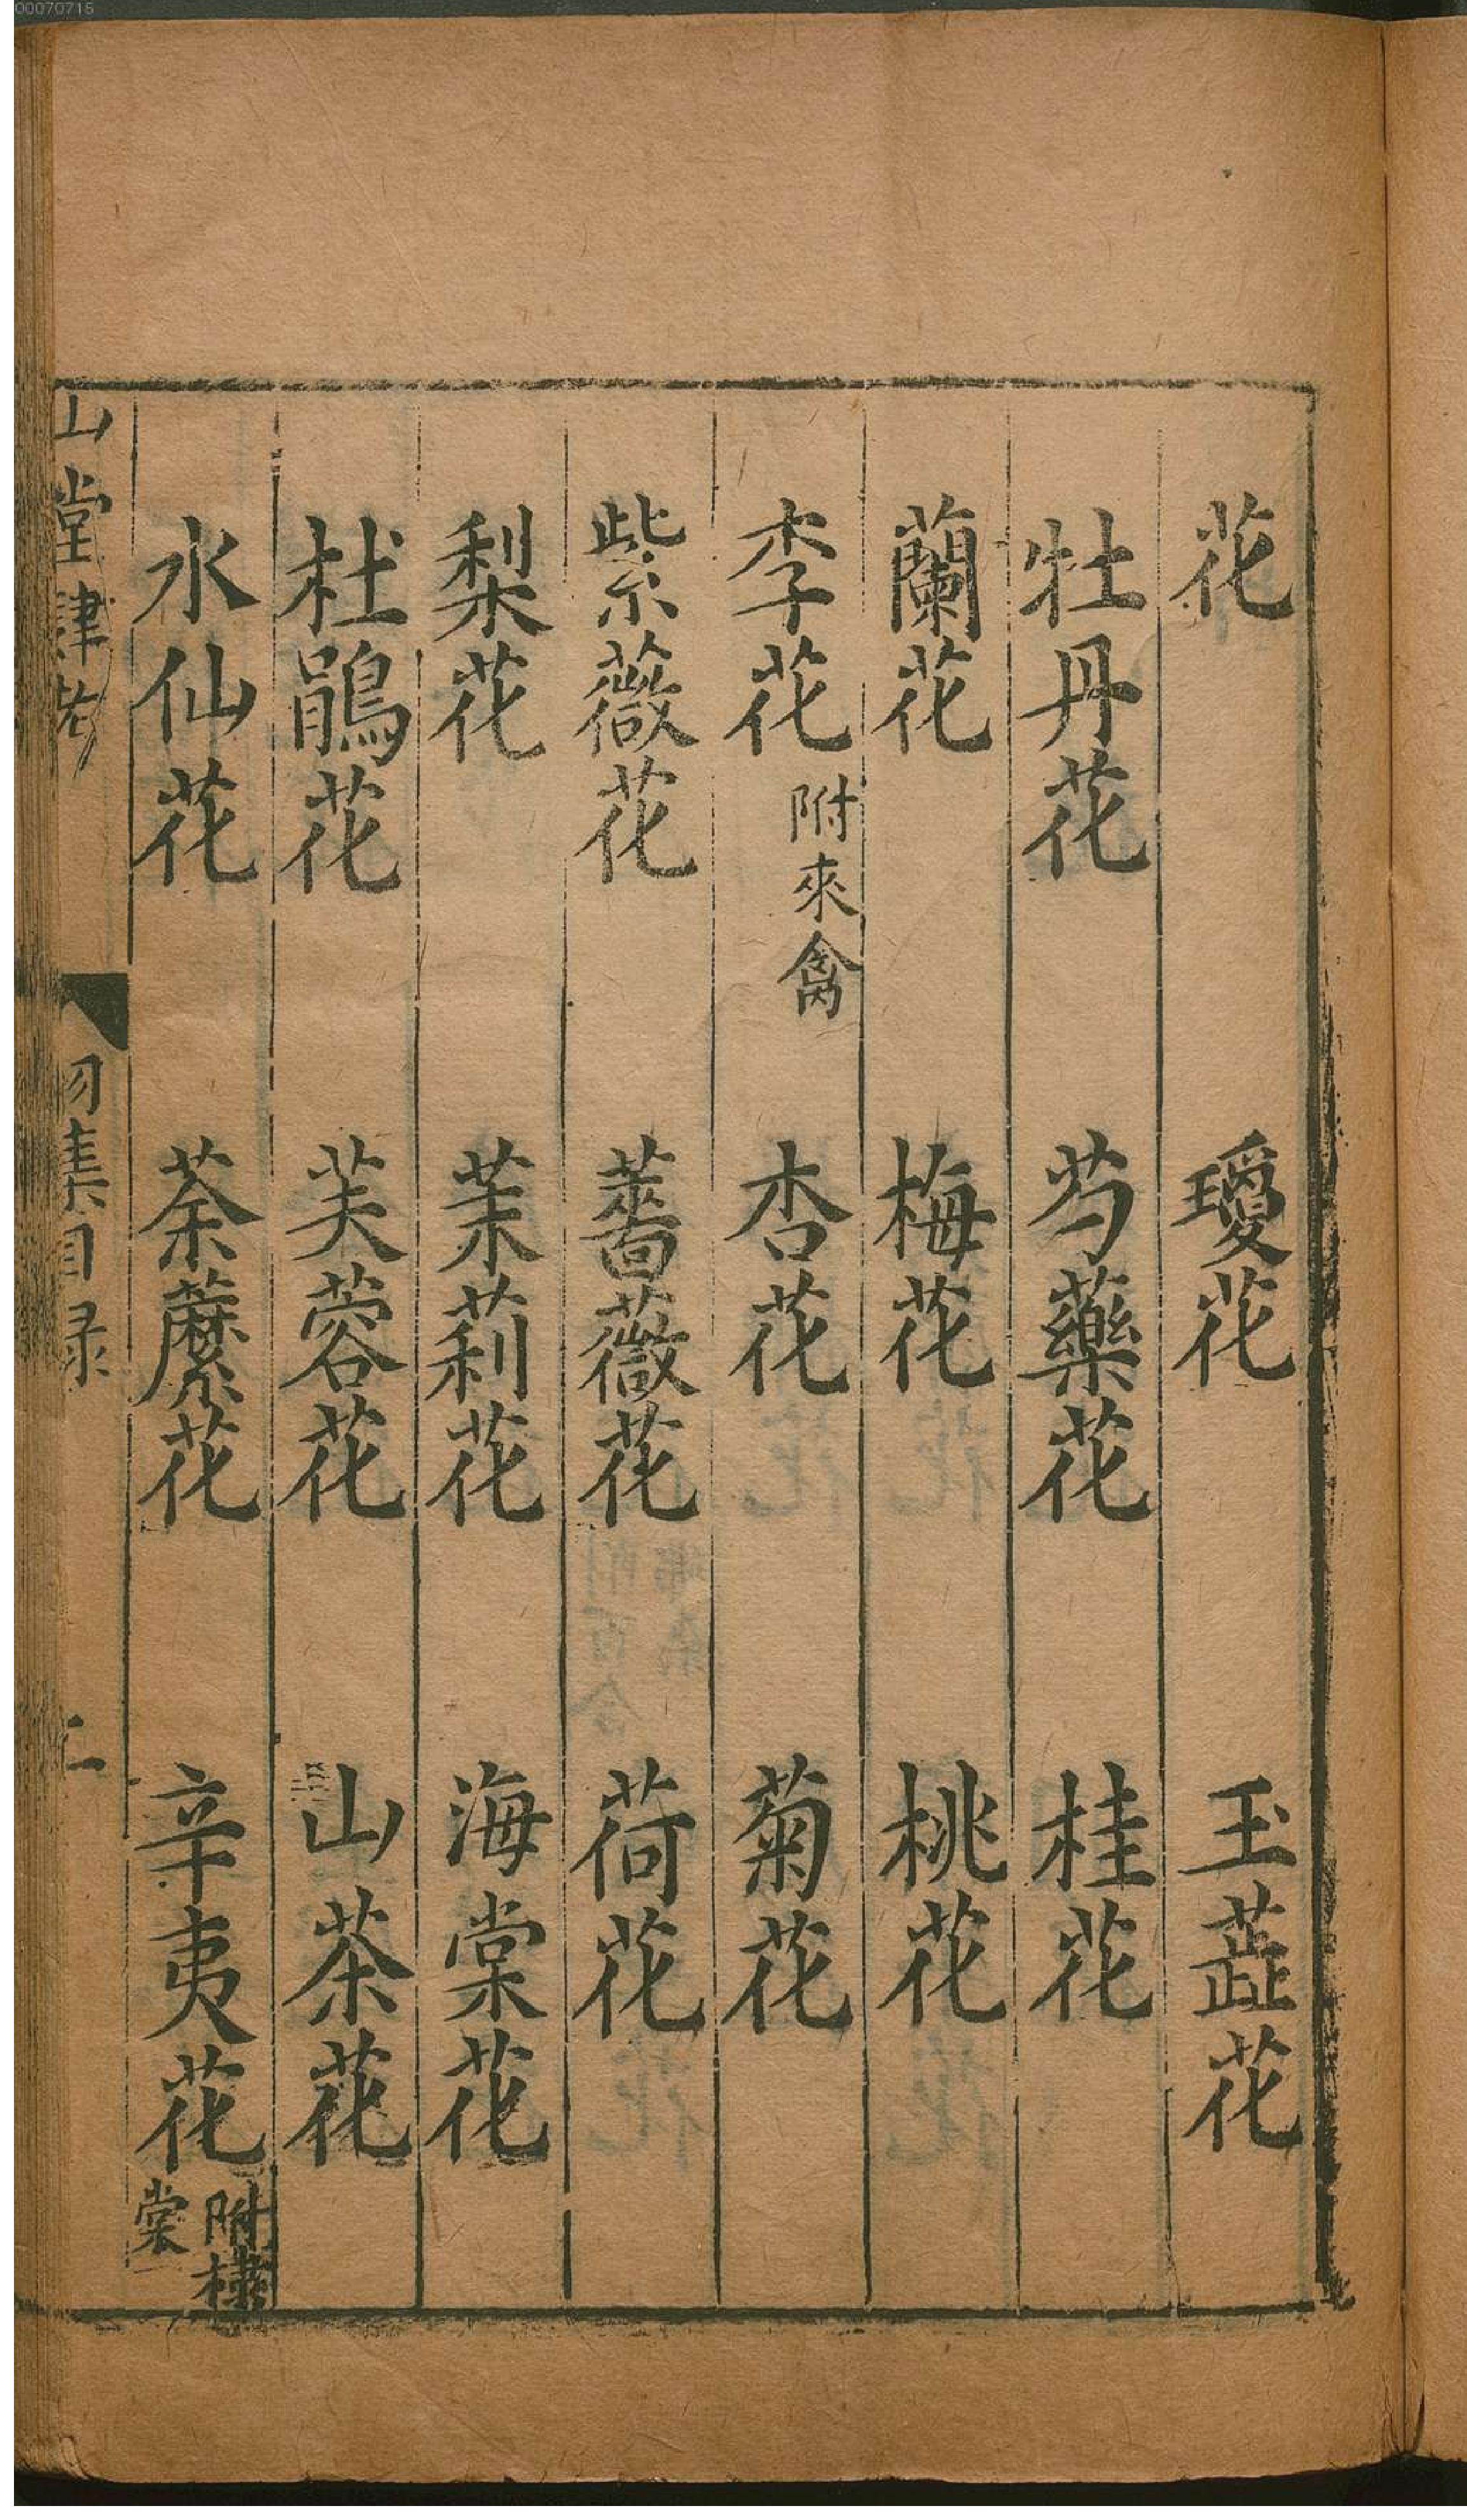 00070715
花　瓊花　玉蕋花
牡丹花　芍藥花　桂花
蘭花　梅花　桃花
李花附來禽　杏花　菊花
紫薇花　薔薇花　荷花
梨花　茉莉花　海棠花
杜鵑花　芙蓉花　山茶花
水仙花　荼蘼花　辛夷花附棣棠
山堂肆考　物集目録　二